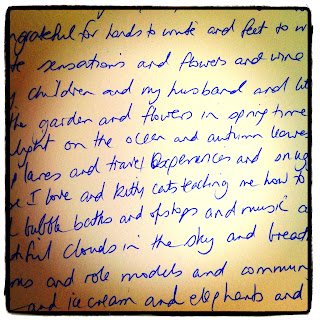 grateful for hands to write and feet to w
sensations and flowers and wine
children and my husband and
the garden and flowers in spring time
light on the ocean and autumn leaves
planes and travel experiences and snug
I love and kitty cats teaching me how to
bubble baths and opshops and music
clouds in the sky and breat
and role models and commun
and ice cream and elephants and